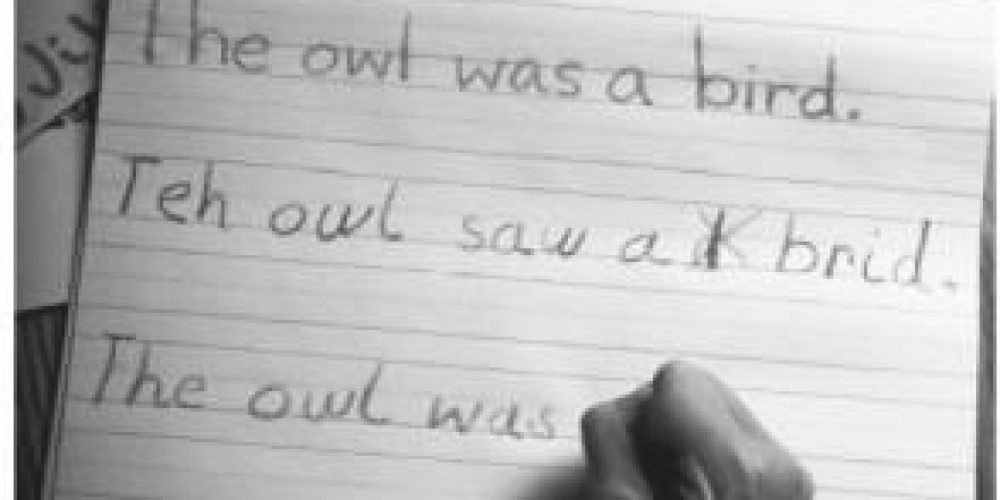 The owl was a bird.
Teh owl saw a brid.
The owl was